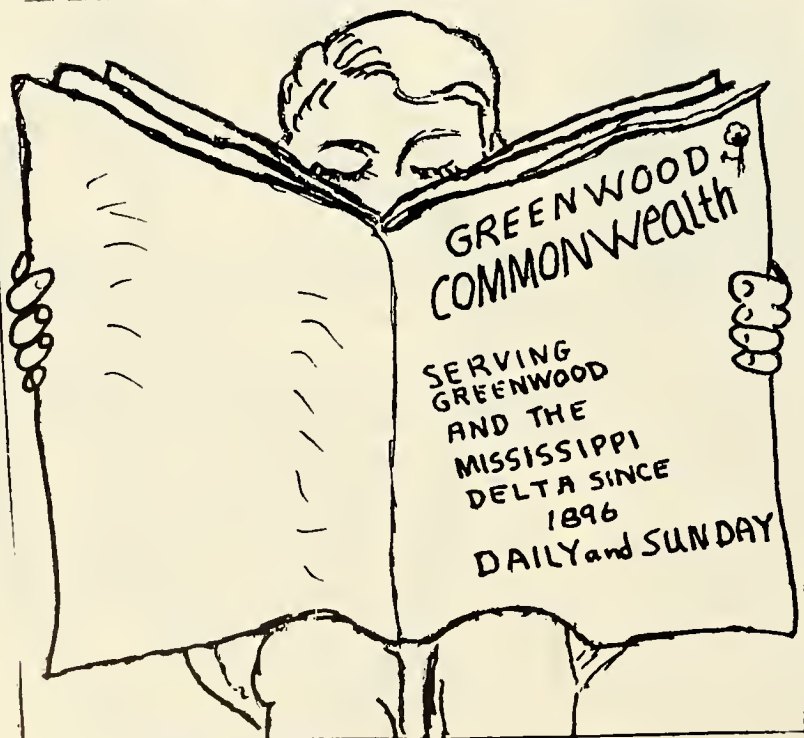 GREENWOOD
COMMONWealth
SERVING
GREENWOOD
AND THE
MISSISSIPPI
DELTA SINCE
1896
DAILY and SUNDAY